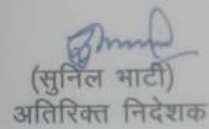 (सुनिल भाटी)
अतिरिक्त निदेशक